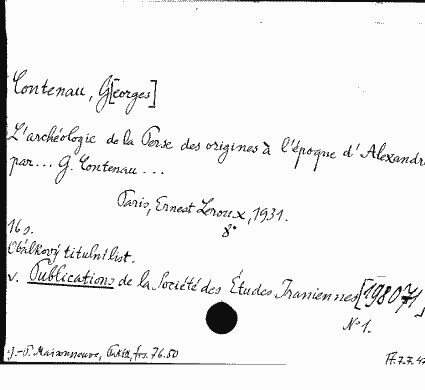 Contenau, G[eorges]
L'archéologie de la Perse des origines à l'époque d'Alexandre
par... G. Contenau...
Paris, Ernest Leroux, 1931.
8°
16 s.
Obálkový titulní list.
v. Publications de la Société des Études Iraniennes [198071]
No 1.
J.-P. Maisonneuve, Paříž, frs. 76.50